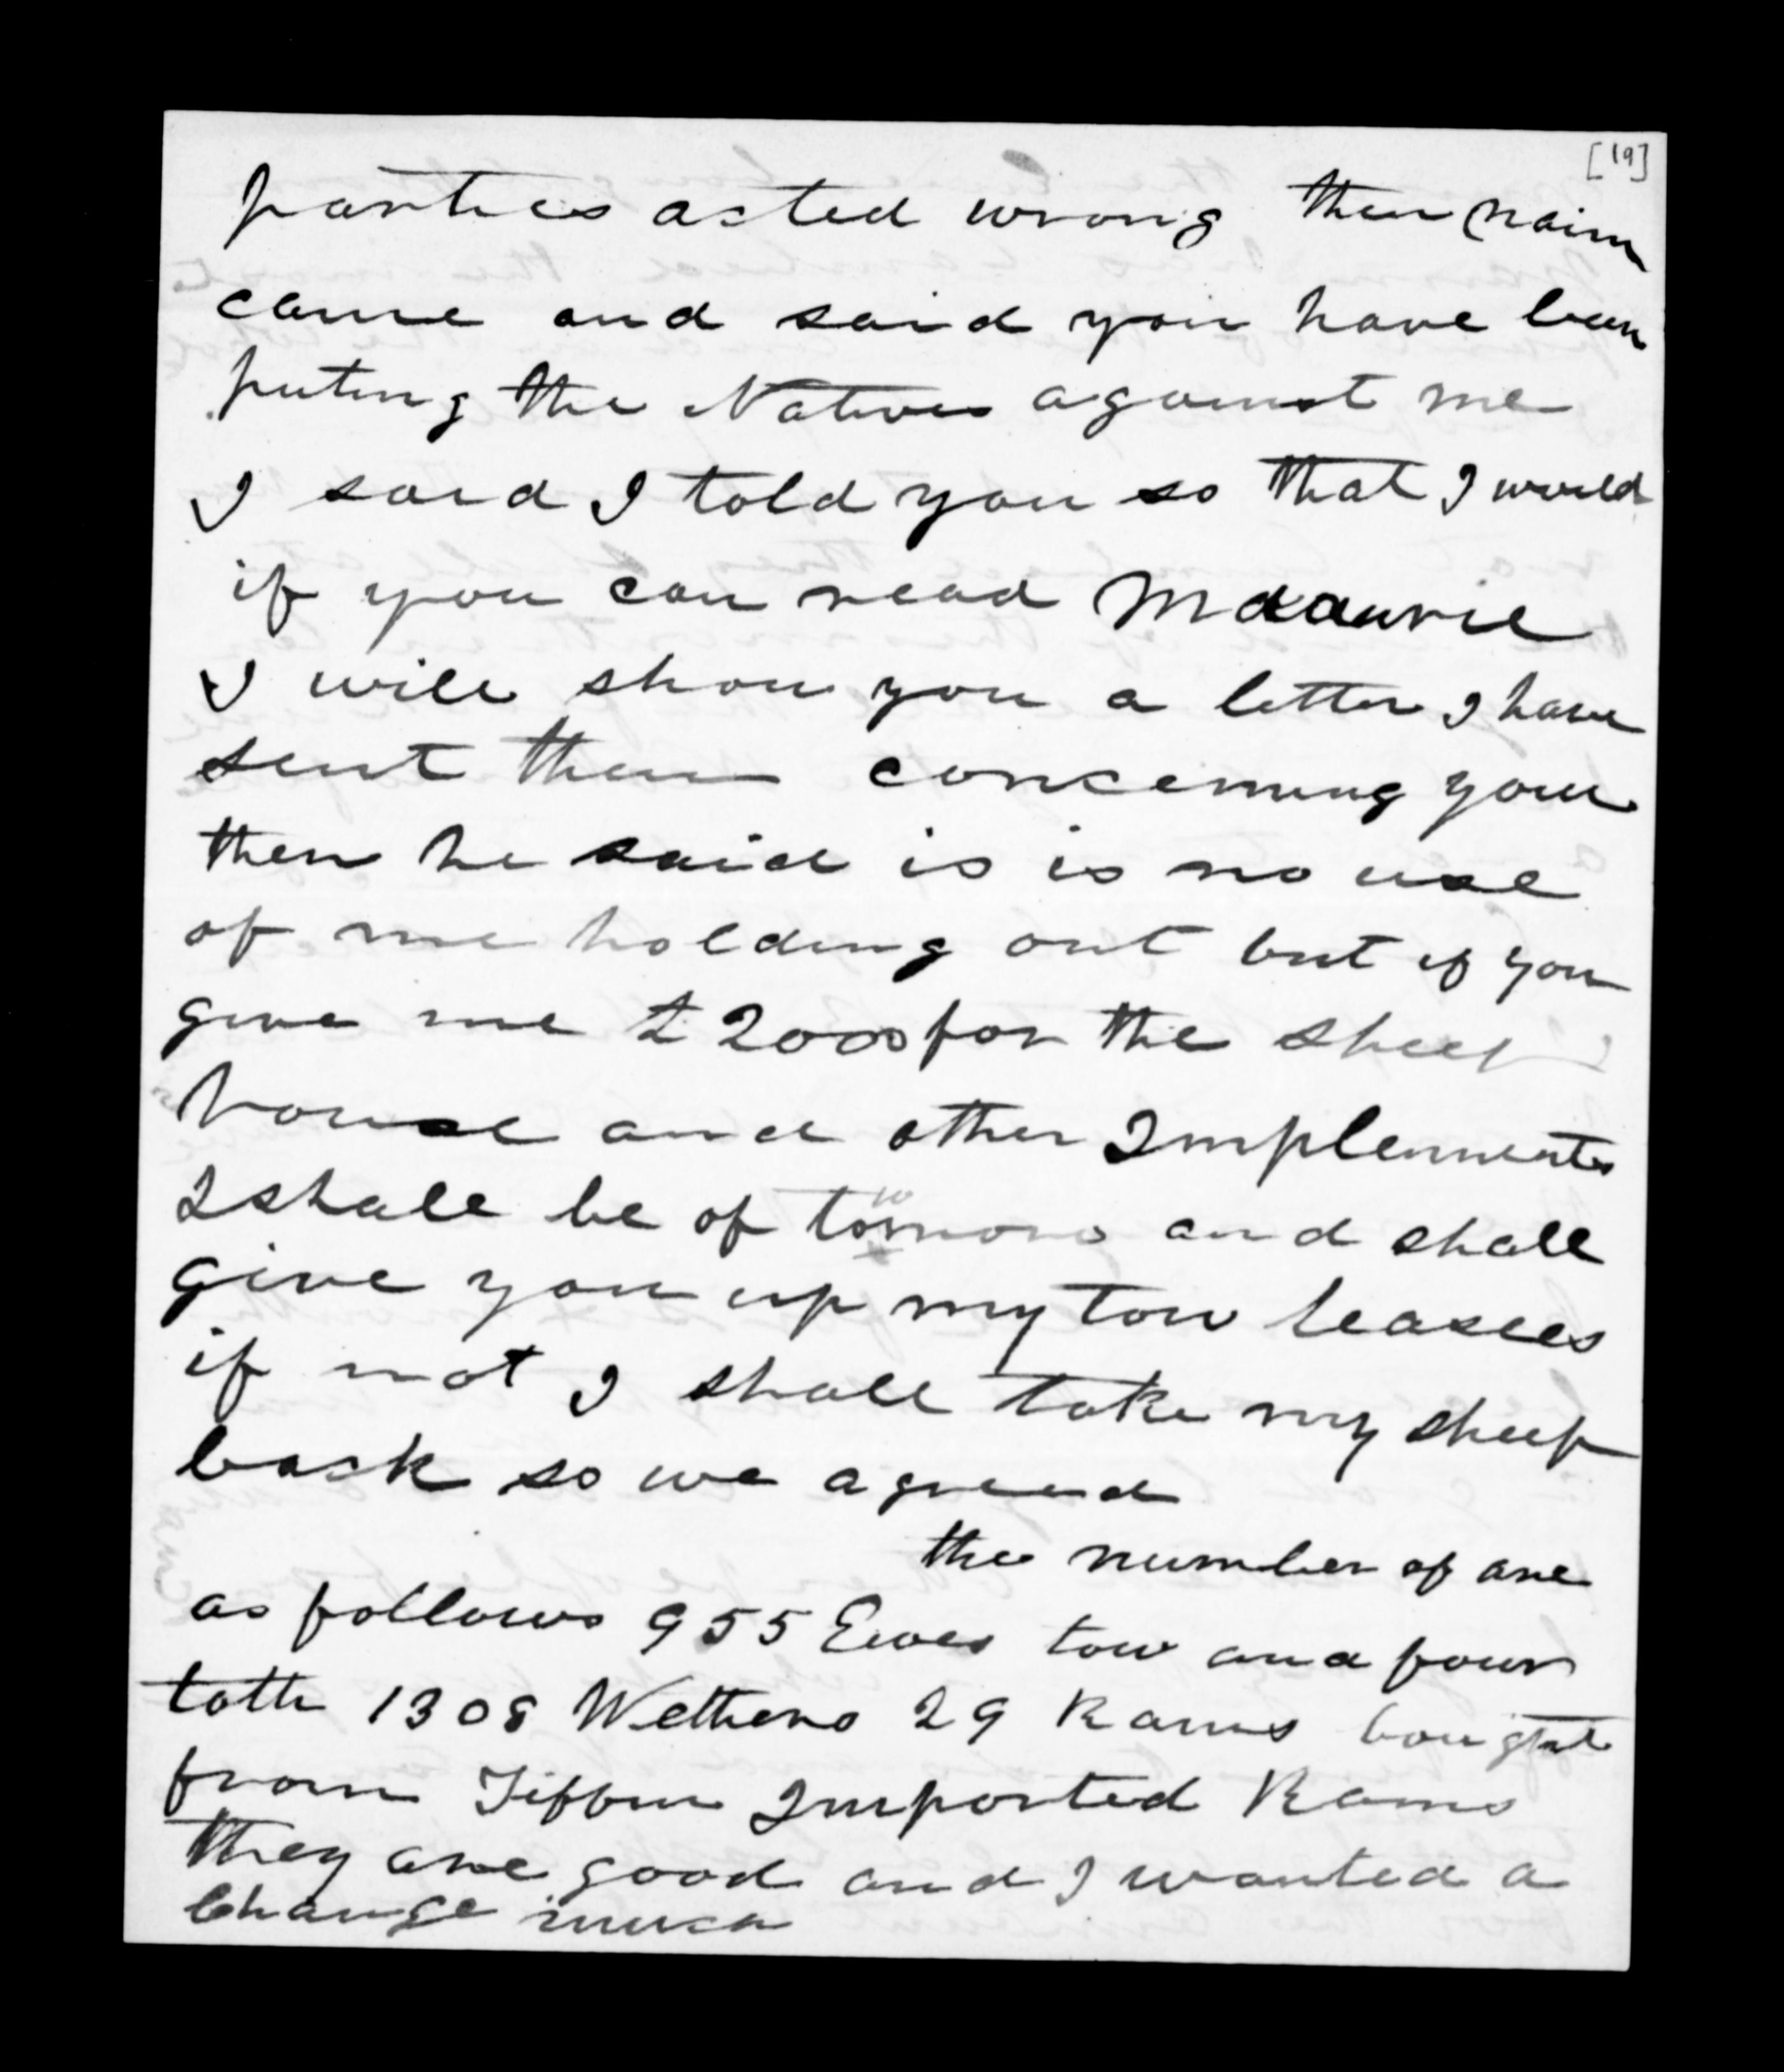 [19]
parties acted wrong then Nairn
came and said you have been
puting the Natives against me
I said I told you so that I would
if you can read Maaurie
I will show you a letter I have
sent them concerning you
then he said is is no use
of me holding out but if you
give me £2000 for the sheep
house and other Implements
I shall be of tomoro and shall
give you up my tow leasees
if not I shall take my sheep
back so we agreed
the number of are
as follows 955 Ewes tow and four
toth 1308 Wethers 29 Rams bought
from Tiffin Imported Rams
they are good and I wanted a
change much